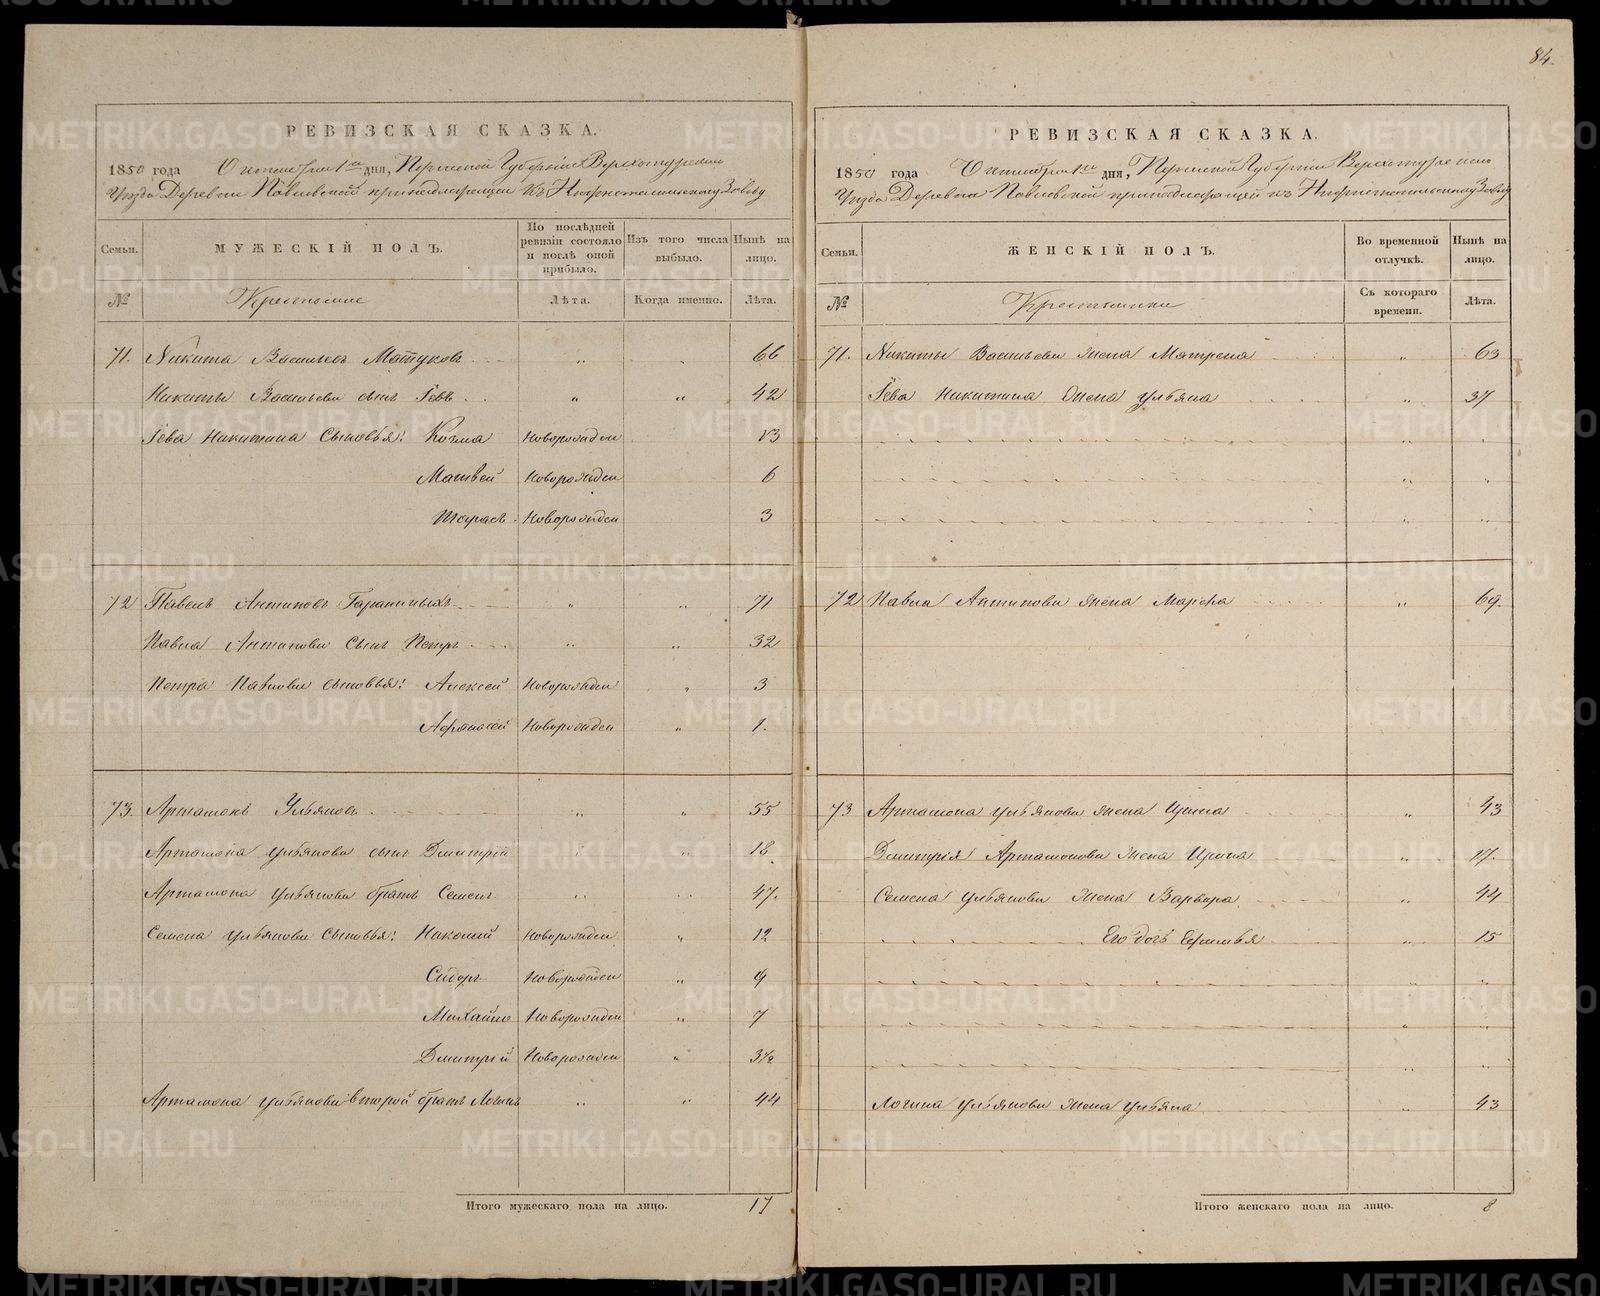 84.
РЕВИЗСКАЯ СКАЗКА.
1850 года Октября 1го дня, Пермской Губернiи Верхотурскаго
Уѣзда Деревни Павловской принадлежащей къ Нижнетагильскому Заводу
Семьи.
МУЖЕСКІЙ ПОЛЪ.
По послѣдней ревизіи состояло и послѣ оной прибыло.
Изъ того числа выбыло.
Нынѣ на лицо.
№
Крестьяне
Лѣта.
Когда именно.
Лѣта.
71. Никита Васильевъ " " 66
Никиты Васильева сынъ Iевъ " " 42
Iева Никитина сыновья: Козма новорожден 13
Матвей новорожден 6
Тарасъ новорожден 3
72 Павелъ Антиповъ " " 71
Павла Антипова сынъ Петръ " " 32
Петра Павлова сыновья: Алексей новорожден " 3
Афанасей новорожден " 1.
73. Артамонъ Ульяновъ " " 55
Артамона Ульянова сынъ Дмитрiй " " 18
Артамона Ульянова братъ Семенъ " " 47.
Семена Ульянова сыновья: новорожден " 12
Сидоръ новорожден " 9
Михайло новорожден " 7
Дмитрiй новорожден " 3½
Артамона Ульянова второй братъ Логинъ " " 44
Итого мужескаго пола на лицо. 17
РЕВИЗСКАЯ СКАЗКА.
1850 года Октября 1го дня, Пермской Губернiи Верхотурскаго
Уѣзда Деревни Павловской принадлежащей къ Нижнетагильскому Заводу
Семьи.
ЖЕНСКІЙ ПОЛЪ.
Во временной отлучкѣ.
Нынѣ на лицо.
№
Крестьянки
Съ котораго времени.
Лѣта.
71. Никиты Васильева жена Матрена " 63
Iева Никитина жена Ульяна " 37
72 Павла Антипова жена Марфа " 69.
73 Артамона Ульянова жена Ирина " 43
Дмитрiя Артамонова жена Ирина " 17.
Семена Ульянова жена Варвара " 44
Его дочь " 15
Логина Ульянова жена Ульяна " 43
Итого женскаго пола на лицо. 8
METRIKI.GASO-URAL.RU